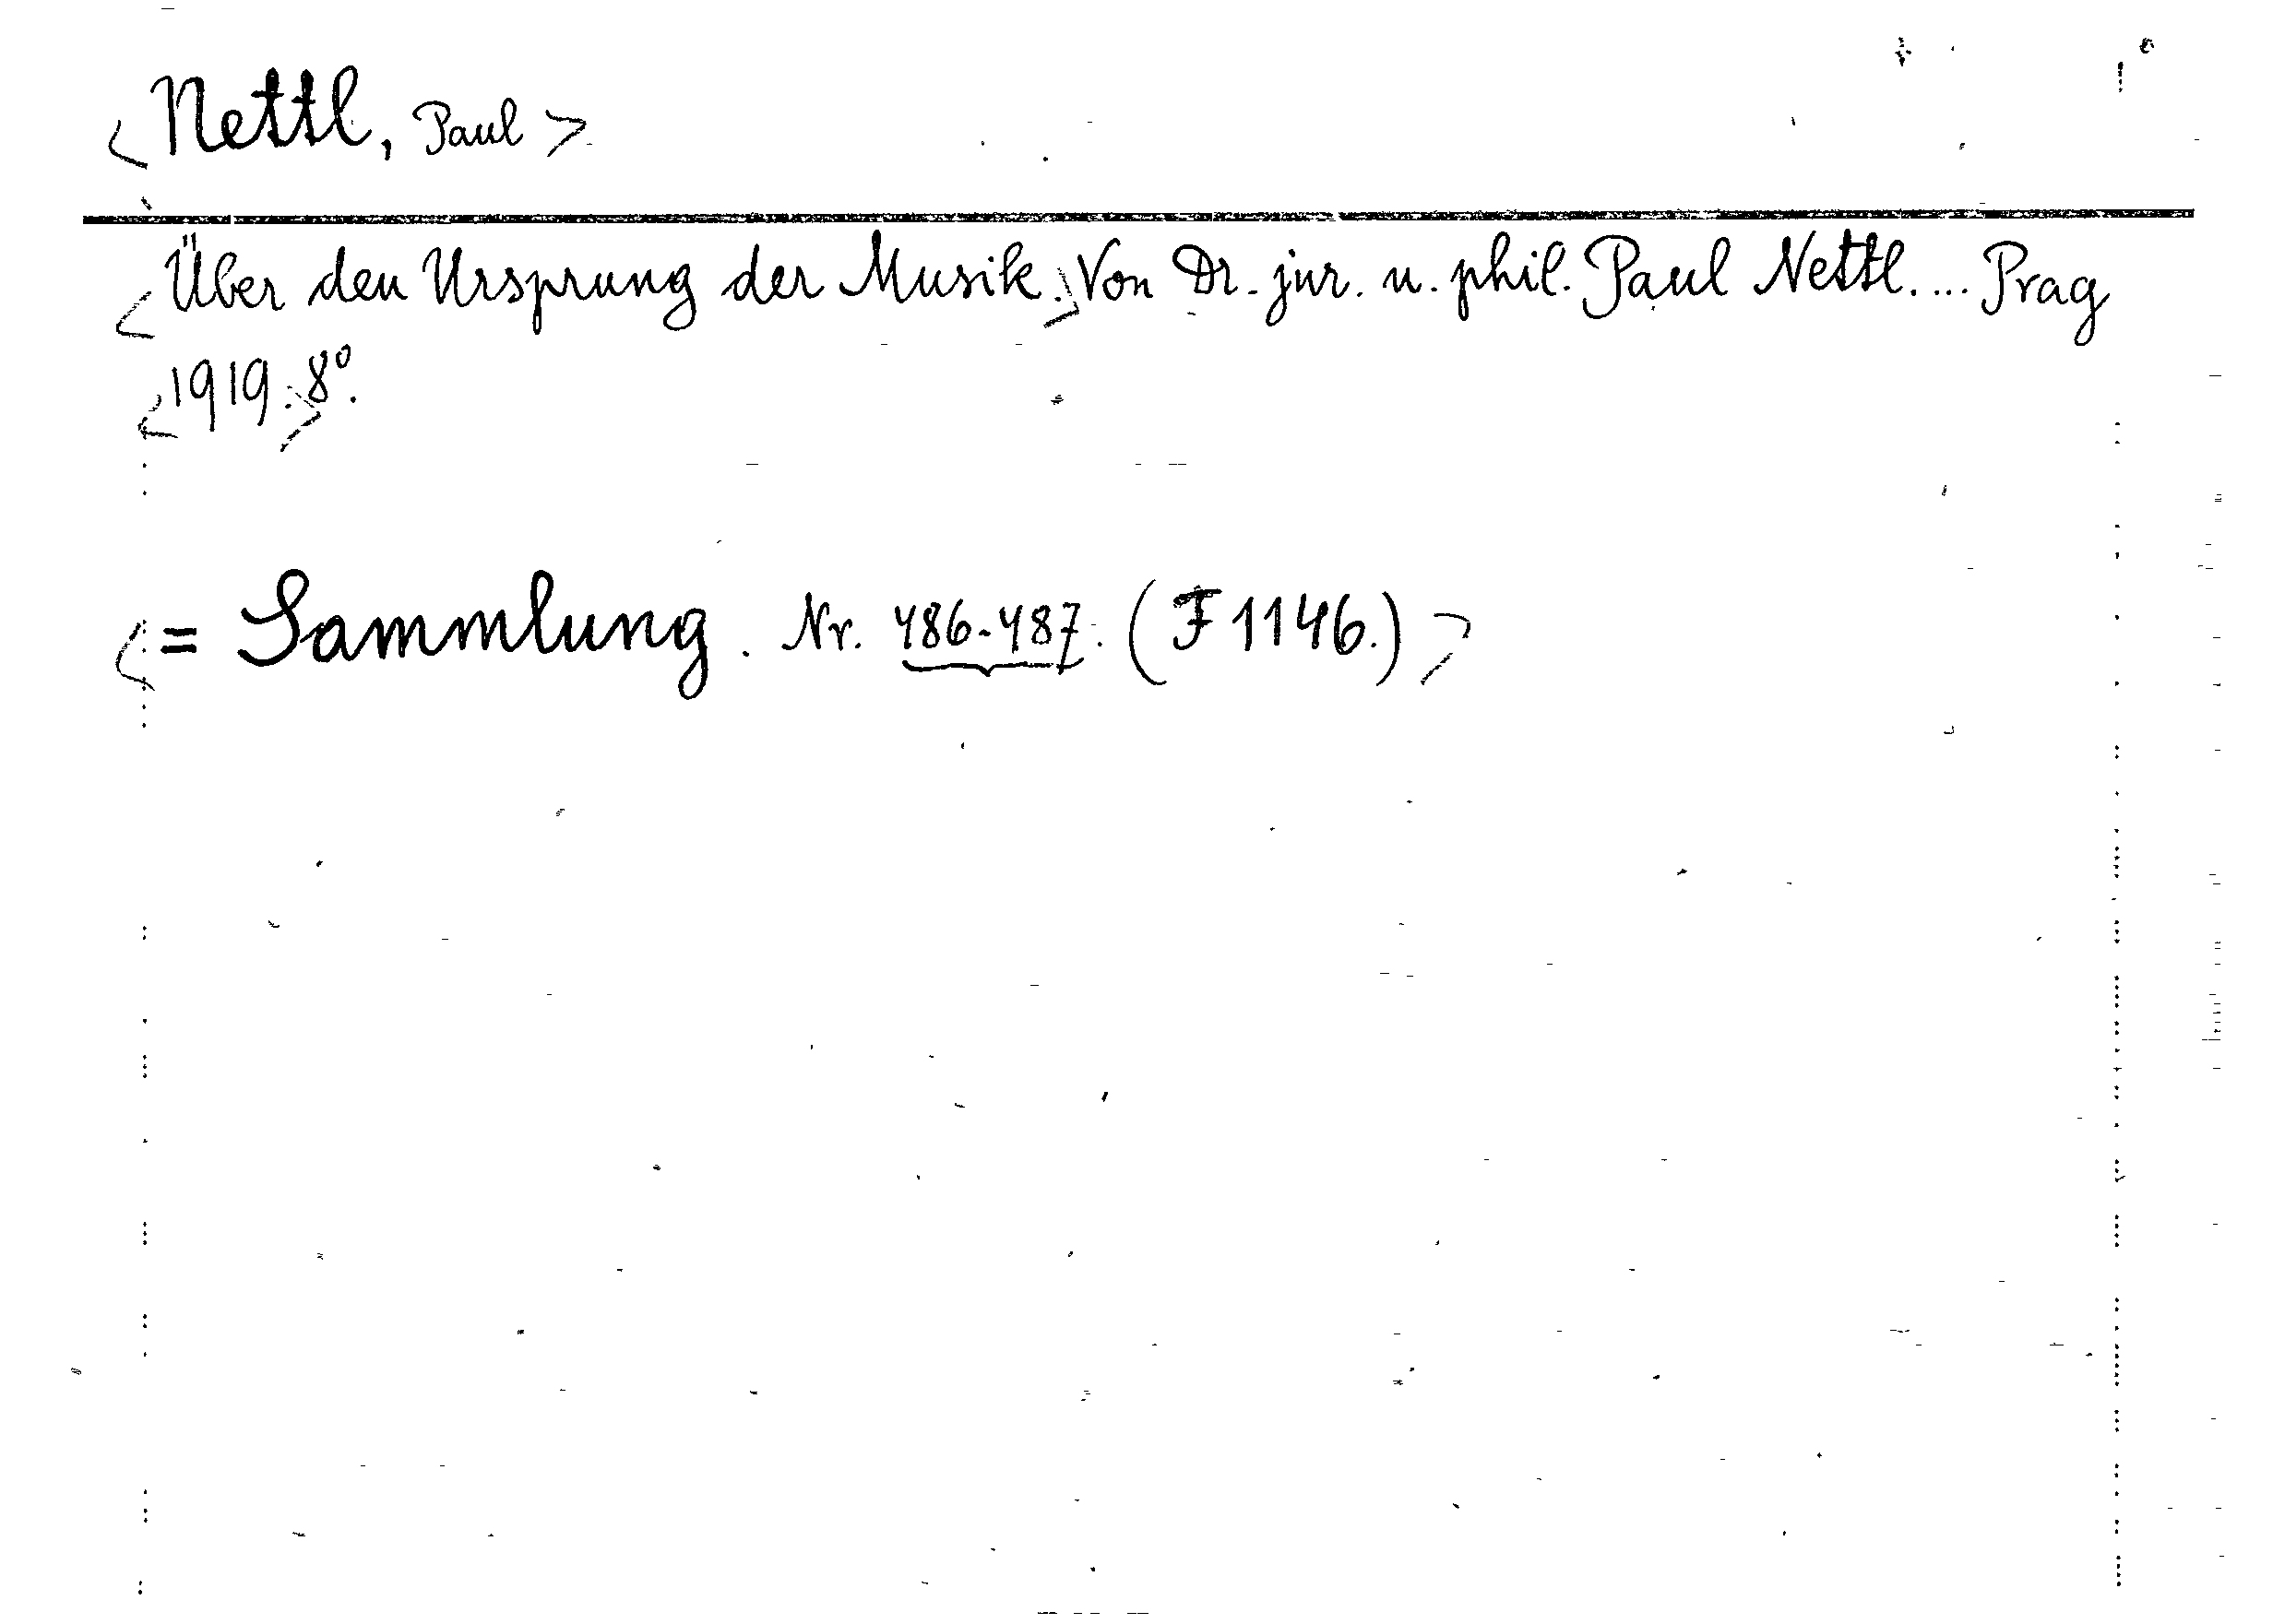 <Nettl, Paul>
<Über den Ursprung der Musik.> Von Dr. jur. u. phil. Paul Nettl. ... Prag
<1919.> 8º.
<= Sammlung. Nr. 486-487. (F 1146.)>